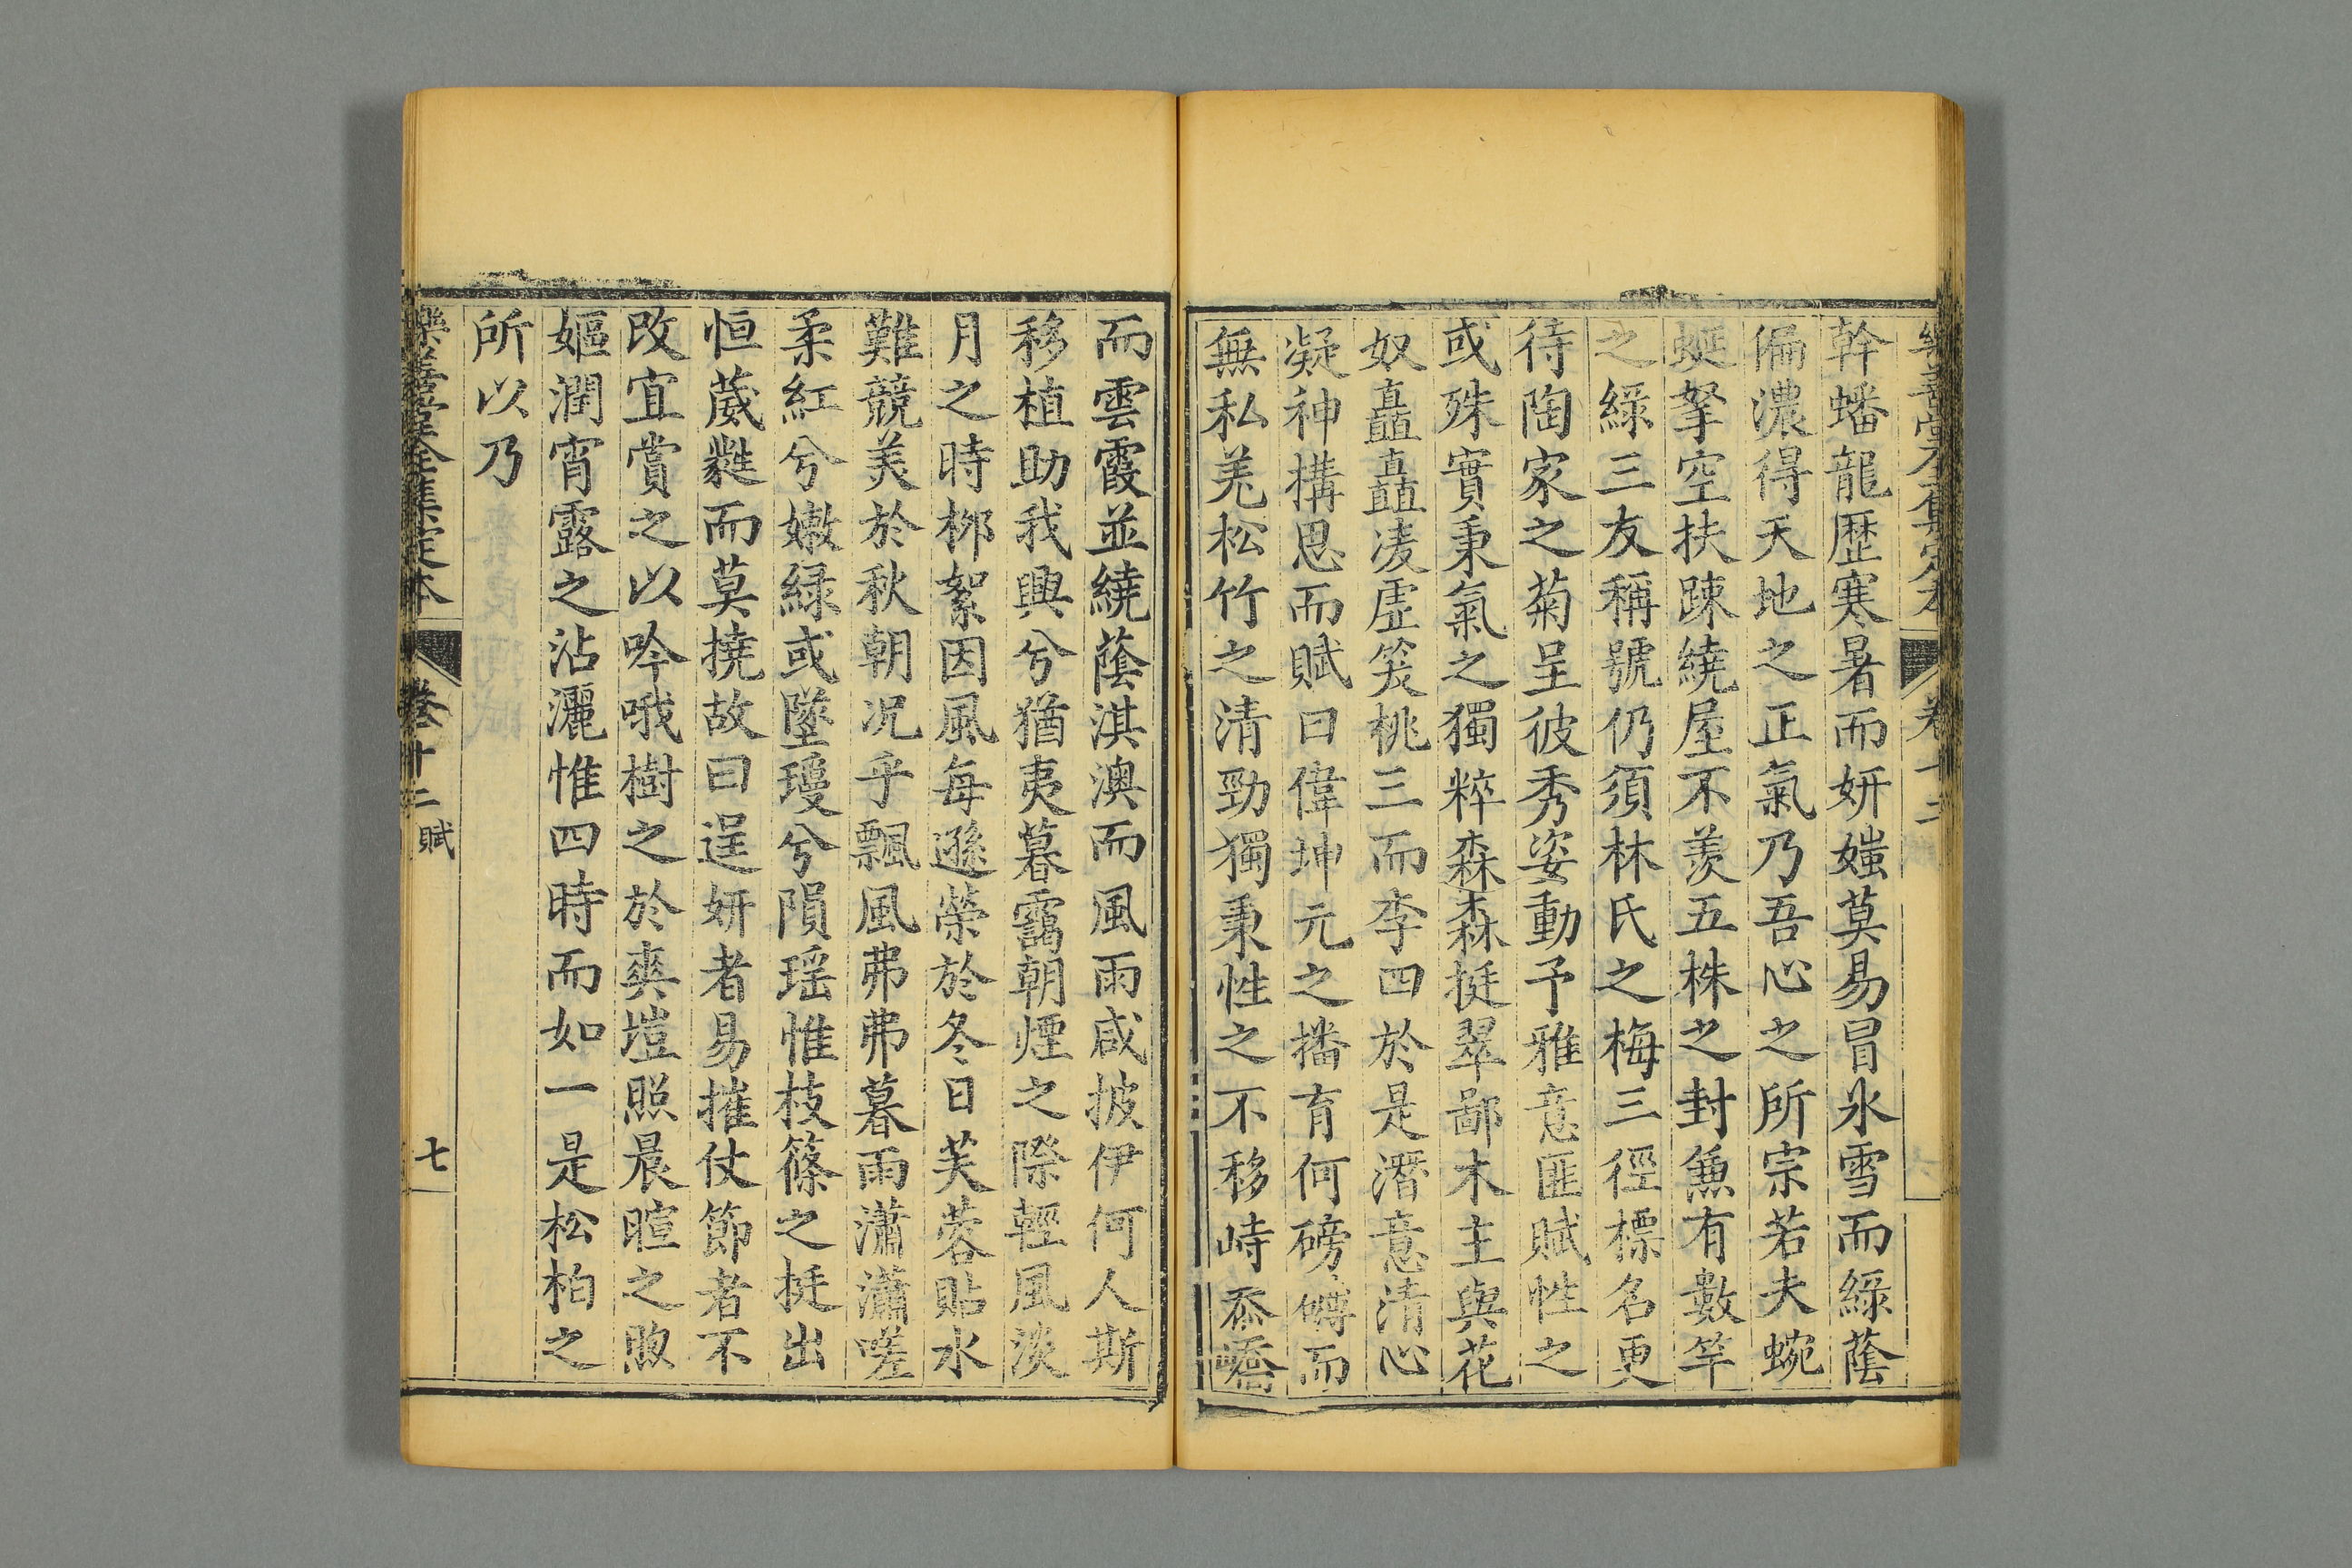 樂善堂全集定本
卷十二
幹蟠龍歷寒暑而妍媸莫易冒氷雪而綠蔭
偏濃得天地之正氣乃吾心之所宗若夫蜿
蜒拏空扶踈繞屋不羨五株之封兼有數竿
之綠三友稱號仍須林氏之梅三徑標名更
待陶家之菊呈彼秀姿動予雅意匪賦性之
或殊實秉氣之獨粹森森挺翠鄙木主與花
奴矗矗凌虛笑桃三而李四於是潛意清心
凝神構思而賦曰偉坤元之播育何磅礴而
無私羌松竹之清勁獨秉性之不移峙喬
而雲霞並繞蔭淇澳而風雨咸披伊何人斯
移植助我興兮猶夷暮靄朝煙之際輕風淡
月之時桞絮因風每遜榮於冬日芙蓉貼水
難競美於秋朝况乎飄風弗弗暮雨瀟瀟嗟
柔紅兮嫩緑或墜瓊兮隕瑶惟枝篠之挺出
恒葳蕤而莫撓故曰逞妍者易摧仗節者不
改宜賞之以吟哦樹之於爽塏照晨暄之煦
嫗潤宵露之沾灑惟四時而如一是松柏之
所以乃
樂善堂全集定本
卷十二賦
七